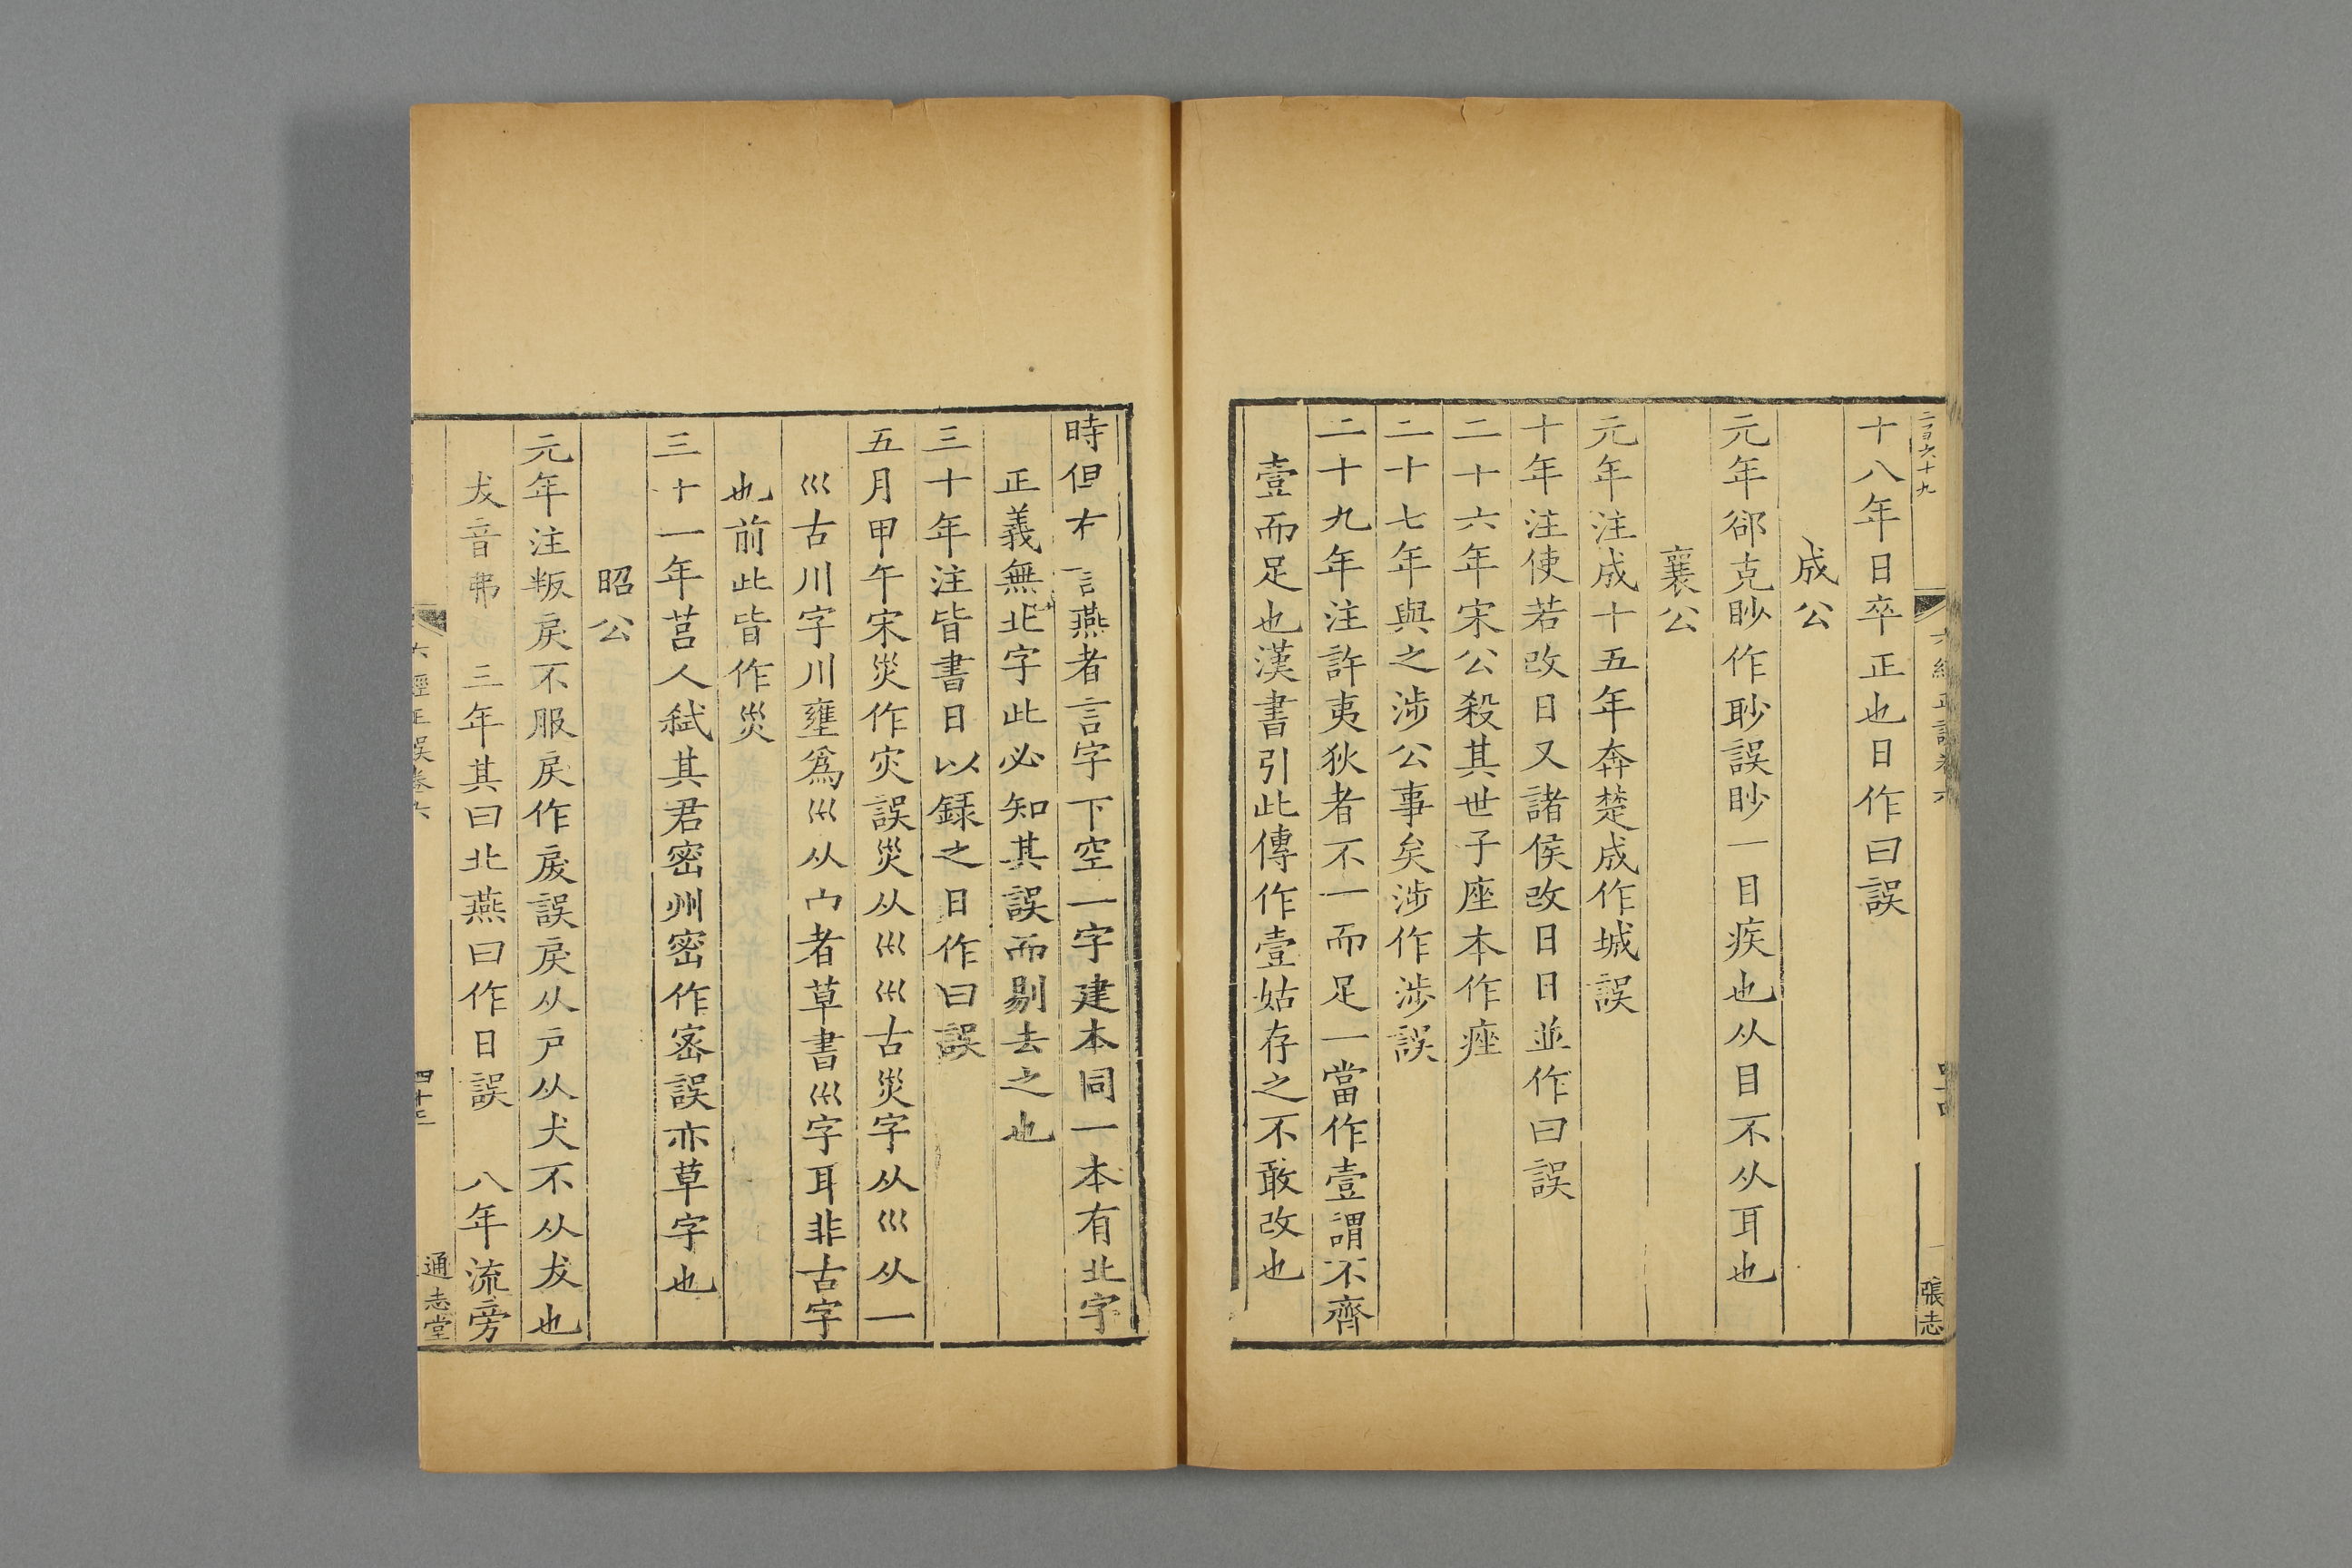 二百六十九
六經正誤卷六
張志
十八年日卒正也日作曰誤
成公
元年郤克眇作䏚誤眇一目疾也从目不从耳也
襄公
元年注成十五年奔楚成作城誤
十年注使若改日又諸侯改日日並作曰誤
二十六年宋公殺其世子座本作痤
二十七年與之涉公事矣涉作渉誤
二十九年注許夷狄者不一而足一當作壹謂不齊
壹而足也漢書引此傳作壹姑存之不敢改也
時但 言燕者言字下空一字建本同一本有北字
正義無北字此必知其誤而剔去之也
三十年注皆書日以録之日作曰誤
五月甲午宋災作灾誤災从巛巛古災字从巛从一
巛古川字川壅爲巛从宀者草書巛字耳非古字
也前此皆作災
三十一年莒人弑其君密州密作宻誤亦草字也
昭公
元年注叛戾不服戾作戻誤戾从戶从犬不从犮也
犮音弗 三年其曰北燕曰作日誤 八年流旁
六經正誤卷六
四十三
通志堂